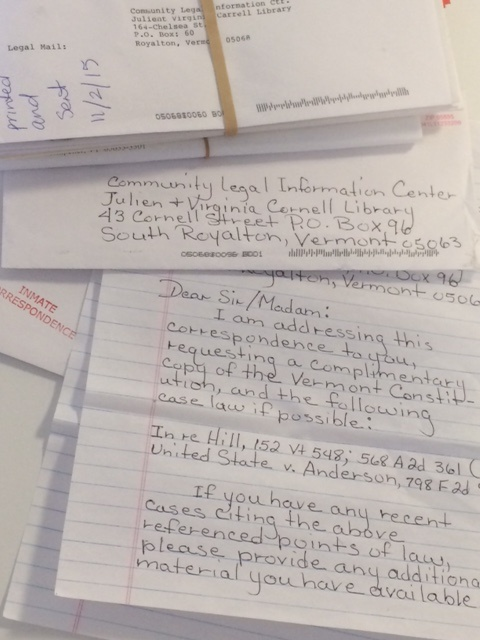 Community Legal Information Ctr.
Julient Virgin Carrell Library
164-Chelsea St.
P.O. Box: 60
Royalton, Verm 0506
Legal Mail:
printed
and
sent
11/2/15
INMATE
CORRESPONDENCE
Community Legal Information Center
Julien + Virginia Cornell Library
43 Cornell Street P.O. Box 96
South Royalton, Vermont 05063
yalton, Vermont 0506
INMATE
RRESPONDENCE
Dear Sir/Madam:
I am addressing this
correspondence to you,
requesting a complimentary
copy of the Vermont Constit-
ution, and the following
case law if possible:
In re Hill, 152 Vt 548; 568 A2d 361 (
United State v. Anderson, 798 F2d
If you have any recent
cases citing the above
referenced points of law,
please provide any additiona
material you have available